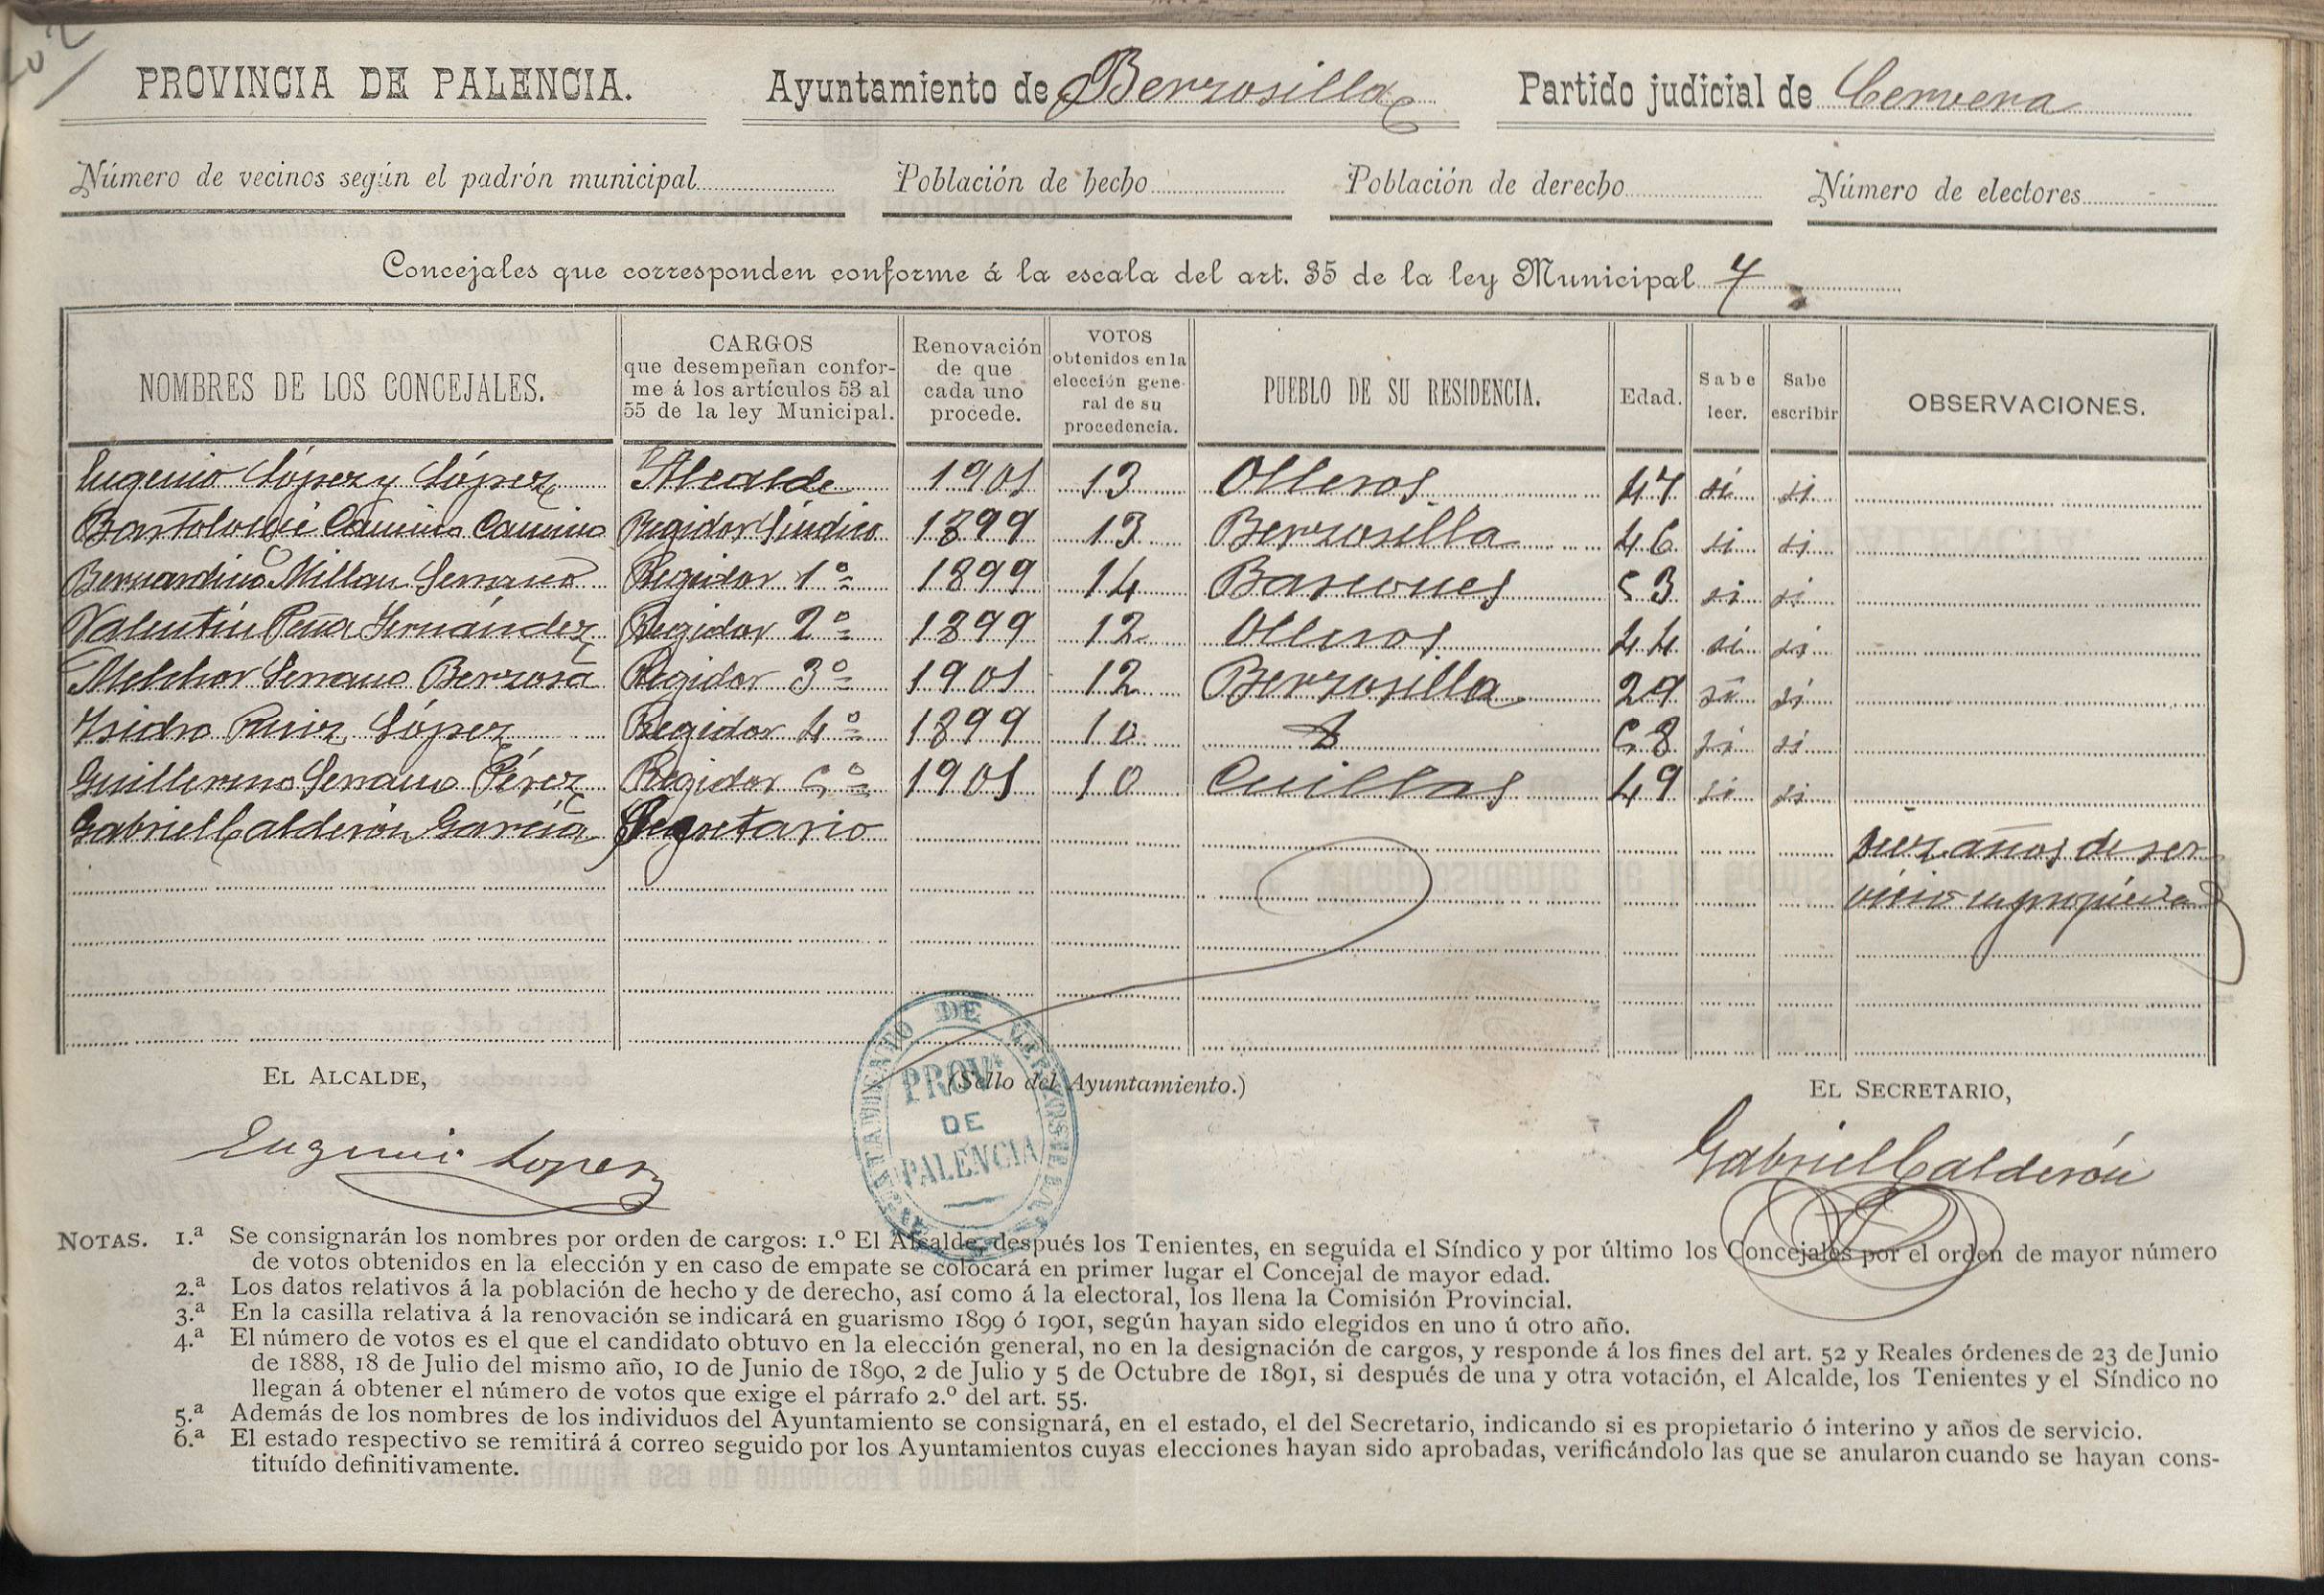 202
PROVINCIA DE PALENCIA. Ayuntamiento de Berzosilla Partido judicial de Cervera
Número de vecinos según el padrón municipal Población de hecho Población de derecho Número de electores
Concejales que corresponden conforme á la escala del art. 35 de la ley Municipal 7
NOMBRES DE LOS CONCEJALES. CARGOS que desempeñan confor-me á los artículos 53 al 55 de la ley Municipal. Renovación de que cada uno procede. VOTOS obtenidos en la elección gene-ral de su procedencia. PUEBLO DE SU RESIDENCIA. Edad. Sabe leer. Sabe escribir OBSERVACIONES.
Eugenio López y López Alcalde 1901 13 Olleros 47 si si
Bartolomé Camino Camino Regidor Síndico 1899 13 Berzosilla 46 si si
Bernardino Millan Serrano Regidor 1º 1899 14 Bascones 53 si si
Valentín Peña Fernandez Regidor 2º 1899 12 Olleros 44 si si
Melchor Serrano Berzosa Regidor 3º 1901 12 Berzosilla 29 si si
Isidro Ruiz López Regidor 4º 1899 10 58 si si
Guillermo Serrano Pérez Regidor 5º 1901 10 Cuillas 49 si si
Gabriel Calderón García Secretario Diez años de ser
vicio en propiedad
EL ALCALDE, (Sello del Ayuntamiento.) EL SECRETARIO,
AYUNTAMIENTO DE BERZOSILLA
PROVª
DE
PALENCIA
Eugenio Lopez Gabriel Calderón
NOTAS. 1.ª Se consignarán los nombres por orden de cargos: 1.º El Alcalde, después los Tenientes, en seguida el Síndico y por último los Concejales por el orden de mayor número
de votos obtenidos en la elección y en caso de empate se colocará en primer lugar el Concejal de mayor edad.
2.ª Los datos relativos á la población de hecho y de derecho, así como á la electoral, los llena la Comisión Provincial.
3.ª En la casilla relativa á la renovación se indicará en guarismo 1899 ó 1901, según hayan sido elegidos en uno ú otro año.
4.ª El número de votos es el que el candidato obtuvo en la elección general, no en la designación de cargos, y responde á los fines del art. 52 y Reales órdenes de 23 de Junio
de 1888, 18 de Julio del mismo año, 10 de Junio de 1890, 2 de Julio y 5 de Octubre de 1891, si después de una y otra votación, el Alcalde, los Tenientes y el Síndico no
llegan á obtener el número de votos que exige el párrafo 2.º del art. 55.
5.ª Además de los nombres de los individuos del Ayuntamiento se consignará, en el estado, el del Secretario, indicando si es propietario ó interino y años de servicio.
6.ª El estado respectivo se remitirá á correo seguido por los Ayuntamientos cuyas elecciones hayan sido aprobadas, verificándolo las que se anularon cuando se hayan cons-
tituído definitivamente.